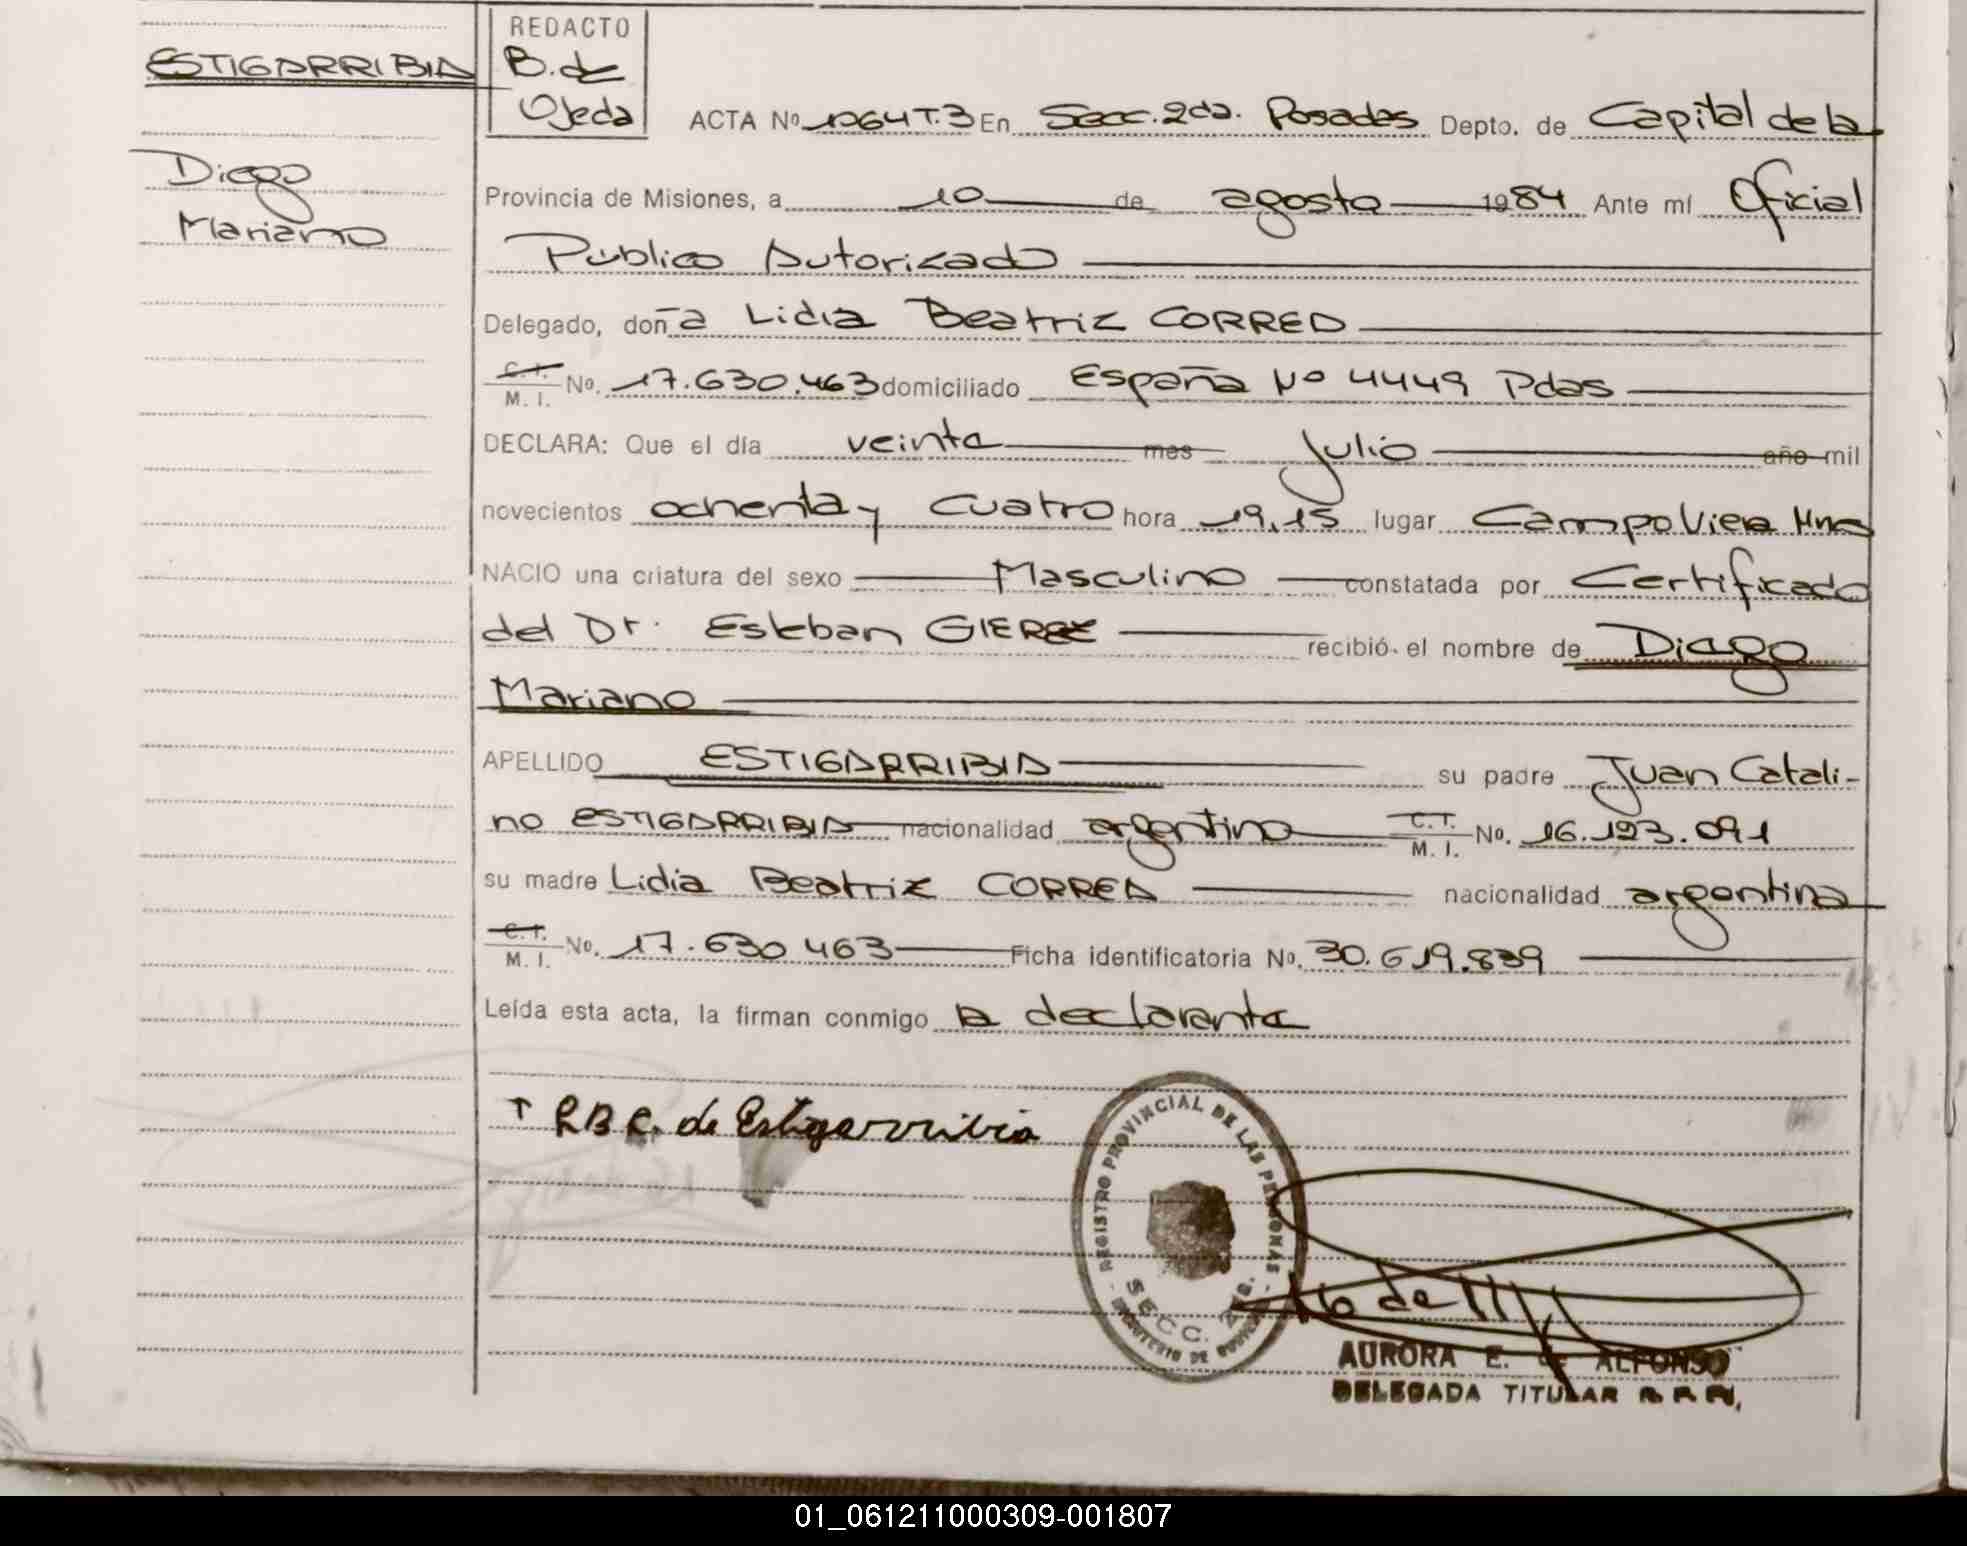 REDACTO
ESTIGARRIBIA B. de
Ojeda
ACTA Nº 1264 T.3 En Secc. 2da. Posadas Depto. de Capital de la
Diego
Provincia de Misiones, a 10 de agosto 1984 Ante mí Oficial
Mariano
Público Autorizado
Delegado, don a Lidia Beatriz CORREA
C.T. M. I. Nº. 17.630.463 domiciliado España Nº 4449 Pdas
DECLARA: Que el día veinte mes Julio año mil
novecientos ochenta y cuatro hora 19,15 lugar Campo Viera Mnes
NACIO una criatura del sexo Masculino constatada por Certificado
del Dr. Esteban recibió el nombre de Diego
Mariano
APELLIDO ESTIGARRIBIA su padre Juan Catali-
no ESTIGARRIBIA nacionalidad argentino C.T. M. I. Nº. 16.123.091
su madre Lidia Beatriz CORREA nacionalidad argentina
C.T. M. I. Nº. 17.630.463 Ficha identificatoria Nº. 30.619.839
Leída esta acta, la firman conmigo la declarante
de Estigarribia
REGISTRO PROVINCIAL DE LAS PERSONAS
SECC. 2da.
AURORA E. de ALFONSO
DELEGADA TITULAR
01_061211000309-001807